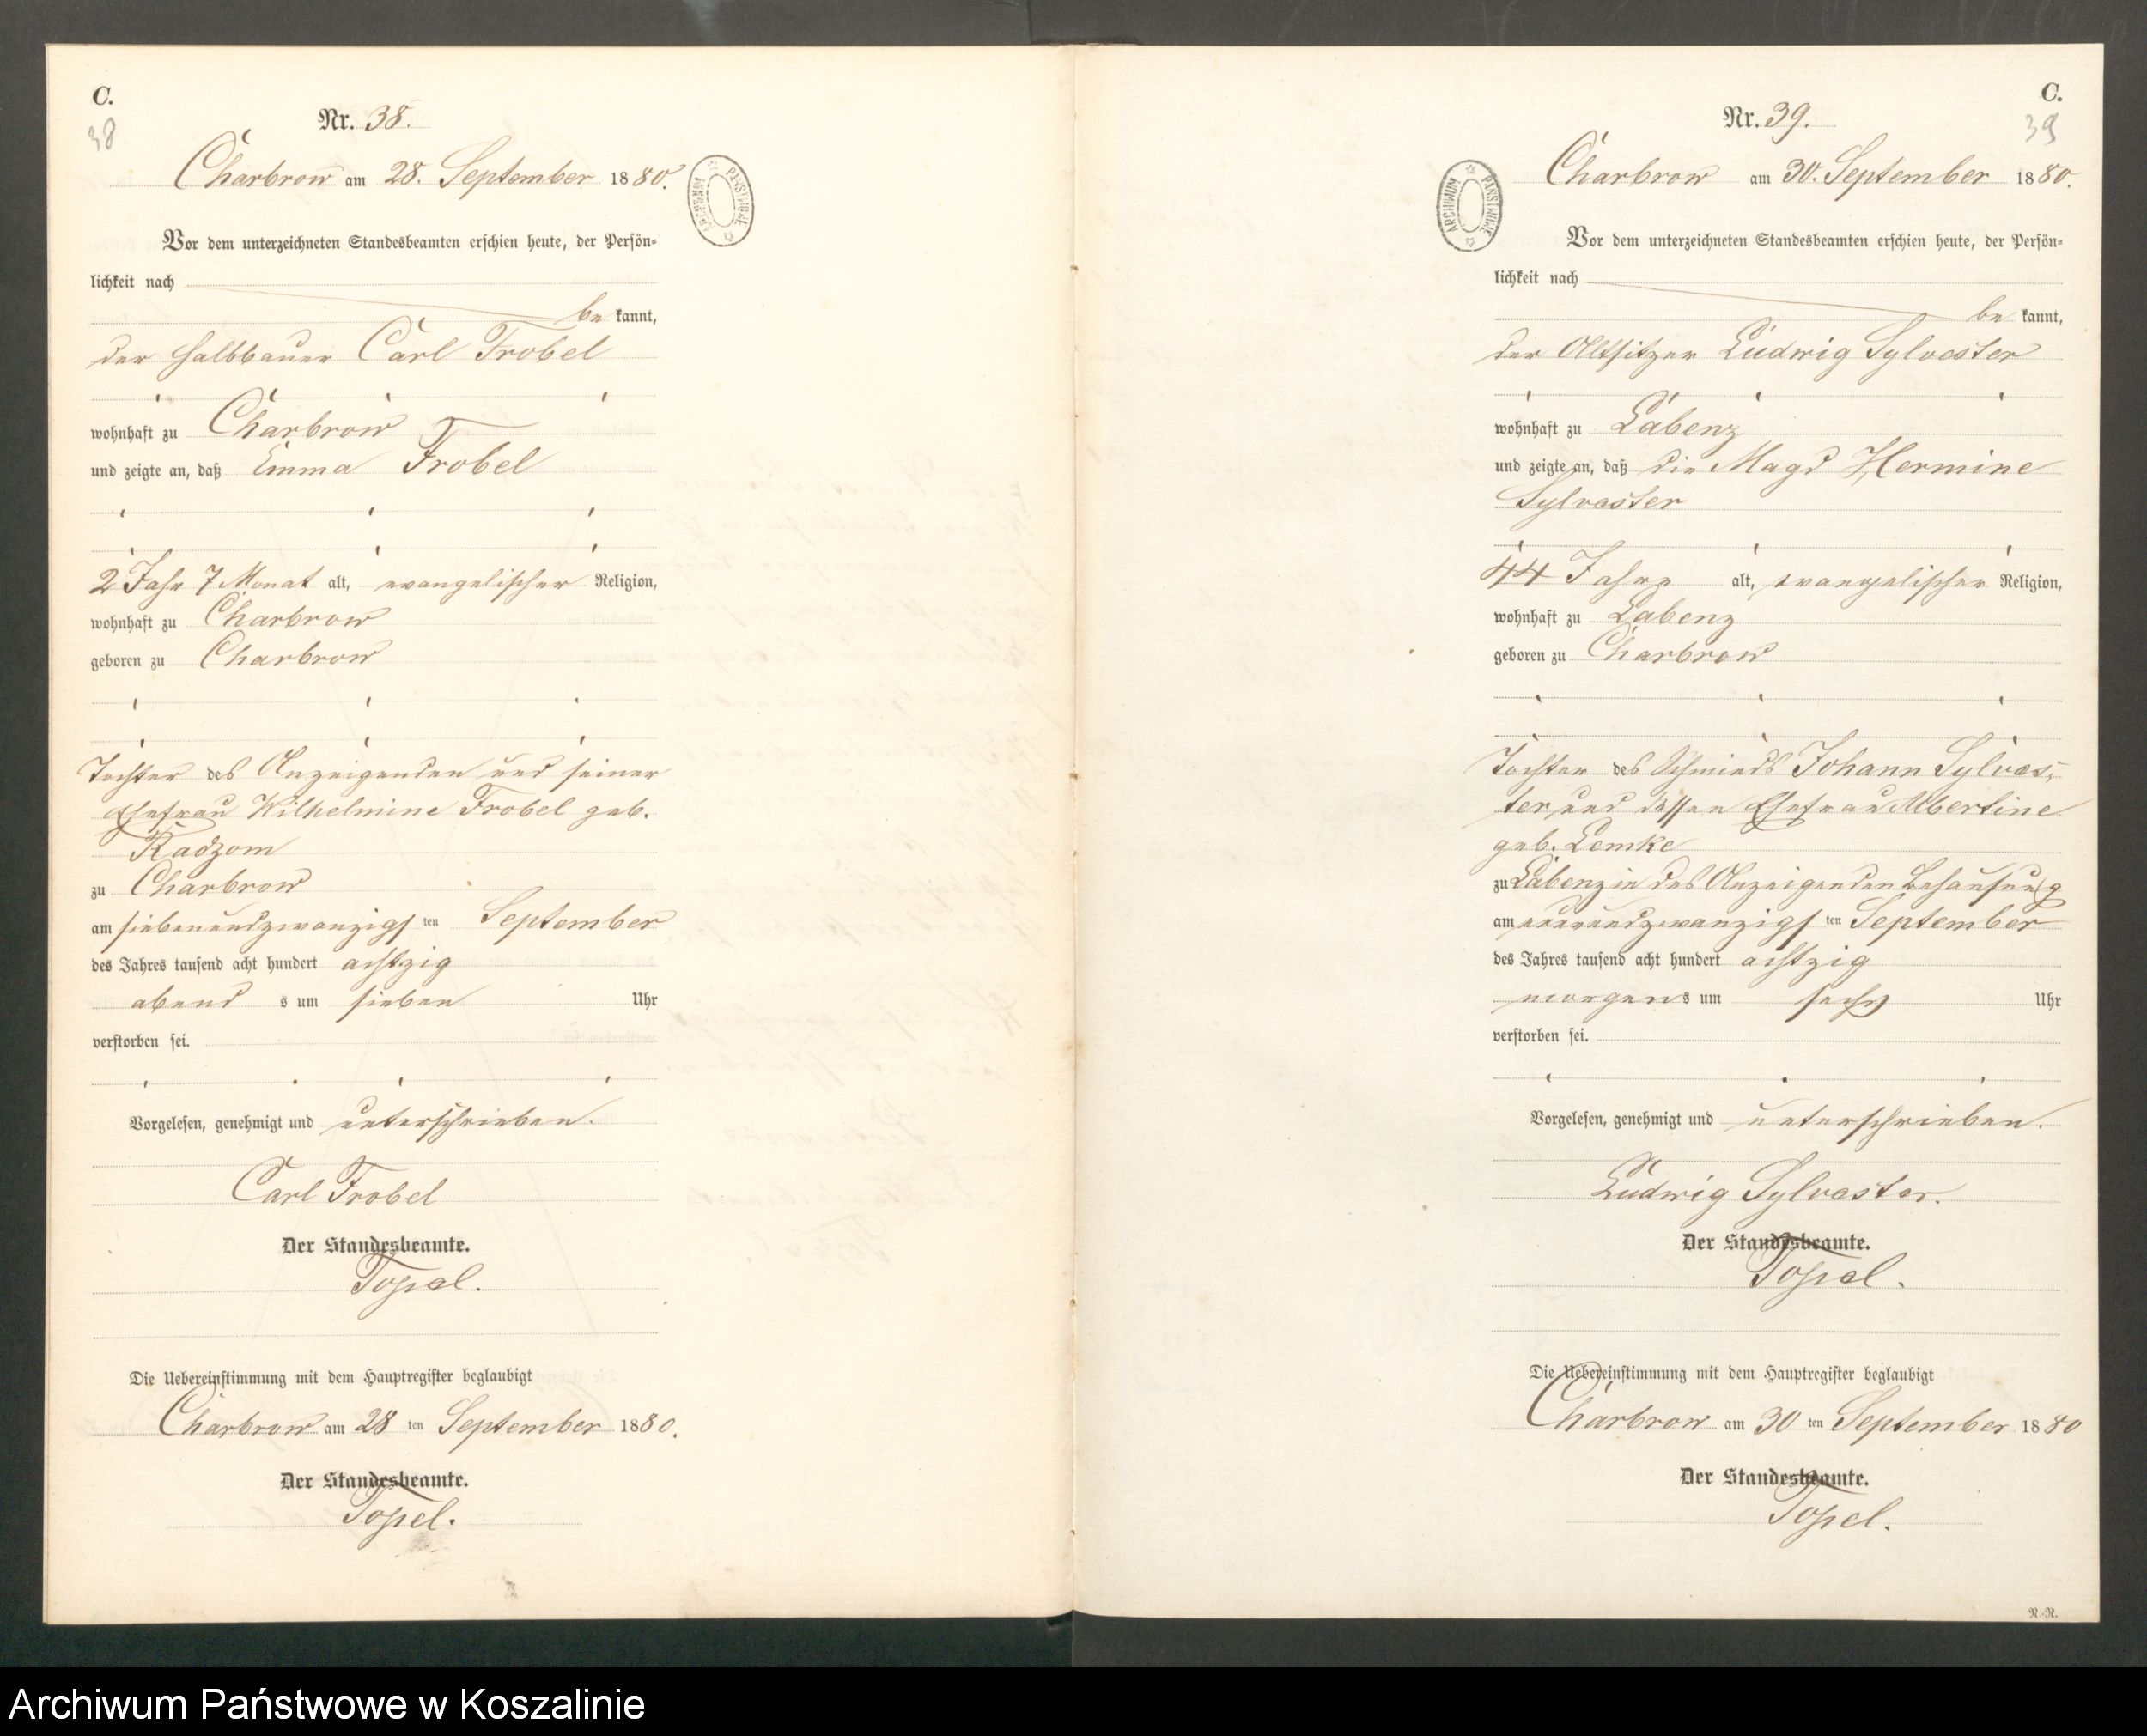 C.
38
Nr. 38.
Charbrow am 28. September 1880.
ARCHIWUM PAŃSTWOWE
Vor dem unterzeichneten Standesbeamten erschien heute, der Persön-
lichkeit nach
be kannt,
der Halbbauer Carl Frobel
wohnhaft zu Charbrow
und zeigte an, daß Emma Frobel
2 Jahr 7 Monat alt, evangelischer Religion,
wohnhaft zu Charbrow
geboren zu Charbrow
Tochter des Anzeigenden und seiner
Ehefrau Wilhelmine Frobel geb.
Radzom
zu Charbrow
am siebenundzwanzigsten September
des Jahres tausend acht hundert achtzig
abends um sieben Uhr
verstorben sei.
Vorgelesen, genehmigt und unterschrieben.
Carl Frobel
Der Standesbeamte.
Topel.
Die Uebereinstimmung mit dem Hauptregister beglaubigt
Charbrow am 28 ten September 1880.
Der Standesbeamte.
Topel.
C.
39
Nr. 39.
Charbrow am 30. September 1880.
ARCHIWUM PAŃSTWOWE
Vor dem unterzeichneten Standesbeamten erschien heute, der Persön-
lichkeit nach
be kannt,
der Altsitzer Ludwig Sylvester
wohnhaft zu Labenz
und zeigte an, daß die Magd Hermine
Sylvester
44 Jahre alt, evangelischer Religion,
wohnhaft zu Labenz
geboren zu Charbrow
Tochter des Schmieds Johann Sylves-
ter und dessen Ehefrau Albertine
geb. Lemke
zu Labenz in des Anzeigenden Behausung
am neunundzwanzigsten September
des Jahres tausend acht hundert achtzig
morgens um sechs Uhr
verstorben sei.
Vorgelesen, genehmigt und unterschrieben.
Ludwig Sylvester.
Der Standesbeamte.
Topel.
Die Uebereinstimmung mit dem Hauptregister beglaubigt
Charbrow am 30 ten September 1880
Der Standesbeamte.
Topel.
N.-N.
Archiwum Państwowe w Koszalinie